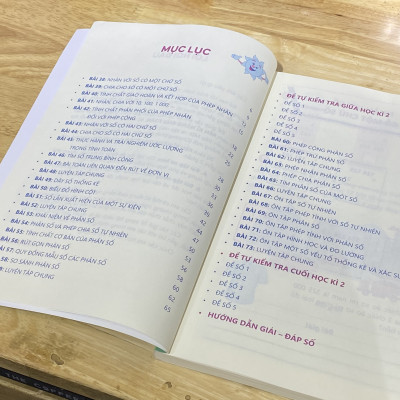 MỤC LỤC
BÀI 38: NHÂN VỚI SỐ CÓ MỘT CHỮ SỐ
BÀI 39: CHIA CHO SỐ CÓ MỘT CHỮ SỐ
BÀI 40: TÍNH CHẤT GIAO HOÁN VÀ KẾT HỢP CỦA PHÉP NHÂN
BÀI 41: NHÂN, CHIA VỚI 10, 100, 1 000
BÀI 42: TÍNH CHẤT PHÂN PHỐI CỦA PHÉP NHÂN
ĐỐI VỚI PHÉP CỘNG
BÀI 43: NHÂN VỚI SỐ CÓ HAI CHỮ SỐ
BÀI 44: CHIA CHO SỐ CÓ HAI CHỮ SỐ
BÀI 45: THỰC HÀNH VÀ TRẢI NGHIỆM ƯỚC LƯỢNG
TRONG TÍNH TOÁN
BÀI 46: TÌM SỐ TRUNG BÌNH CỘNG
BÀI 47: BÀI TOÁN LIÊN QUAN ĐẾN RÚT VỀ ĐƠN VỊ
BÀI 48: LUYỆN TẬP CHUNG
BÀI 49: DÃY SỐ LIỆU THỐNG KÊ
BÀI 50: BIỂU ĐỒ HÌNH CỘT
BÀI 51: SỐ LẦN XUẤT HIỆN CỦA MỘT SỰ KIỆN
BÀI 52: LUYỆN TẬP CHUNG
BÀI 53: KHÁI NIỆM VỀ PHÂN SỐ
BÀI 54: PHÂN SỐ VÀ PHÉP CHIA SỐ TỰ NHIÊN
BÀI 55: TÍNH CHẤT CƠ BẢN CỦA PHÂN SỐ
BÀI 56: RÚT GỌN PHÂN SỐ
BÀI 57: QUY ĐỒNG MẪU SỐ CÁC PHÂN SỐ
58: SO SÁNH PHÂN SỐ
LUYỆN TẬP CHUNG
ĐỀ TỰ KIỂM TRA GIỮA HỌC KÌ 2
ĐỀ SỐ 1
ĐỀ SỐ 2
ĐỀ SỐ 3
ĐỀ SỐ 4
ĐỀ SỐ 5
BÀI 60: PHÉP CỘNG PHÂN SỐ
BÀI 61: PHÉP TRỪ PHÂN SỐ
BÀI 62: LUYỆN TẬP CHUNG
BÀI 63: PHÉP NHÂN PHÂN SỐ
BÀI 64: PHÉP CHIA PHÂN SỐ
BÀI 65: TÌM PHÂN SỐ CỦA MỘT SỐ
BÀI 66: LUYỆN TẬP CHUNG
ÔN TẬP SỐ TỰ NHIÊN
BÀI 68: ÔN TẬP PHÉP TÍNH VỚI SỐ TỰ NHIÊN
BÀI 69: ÔN TẬP PHÂN SỐ
BÀI 70: ÔN TẬP PHÉP TÍNH VỚI PHÂN SỐ
BÀI 71: ÔN TẬP HÌNH HỌC VÀ ĐO LƯỜNG
BÀI 72: ÔN TẬP MỘT SỐ YẾU TỐ THỐNG KÊ VÀ XÁC SU
BÀI 73: LUYỆN TẬP CHUNG
ĐỀ TỰ KIỂM TRA CUỐI HỌC KÌ 2
ĐỀ SỐ 1
ĐỀ SỐ 2
ĐỀ SỐ 3
ĐỀ SỐ 4
ĐỀ SỐ 5
HƯỚNG DẪN GIẢI – ĐÁP SỐ